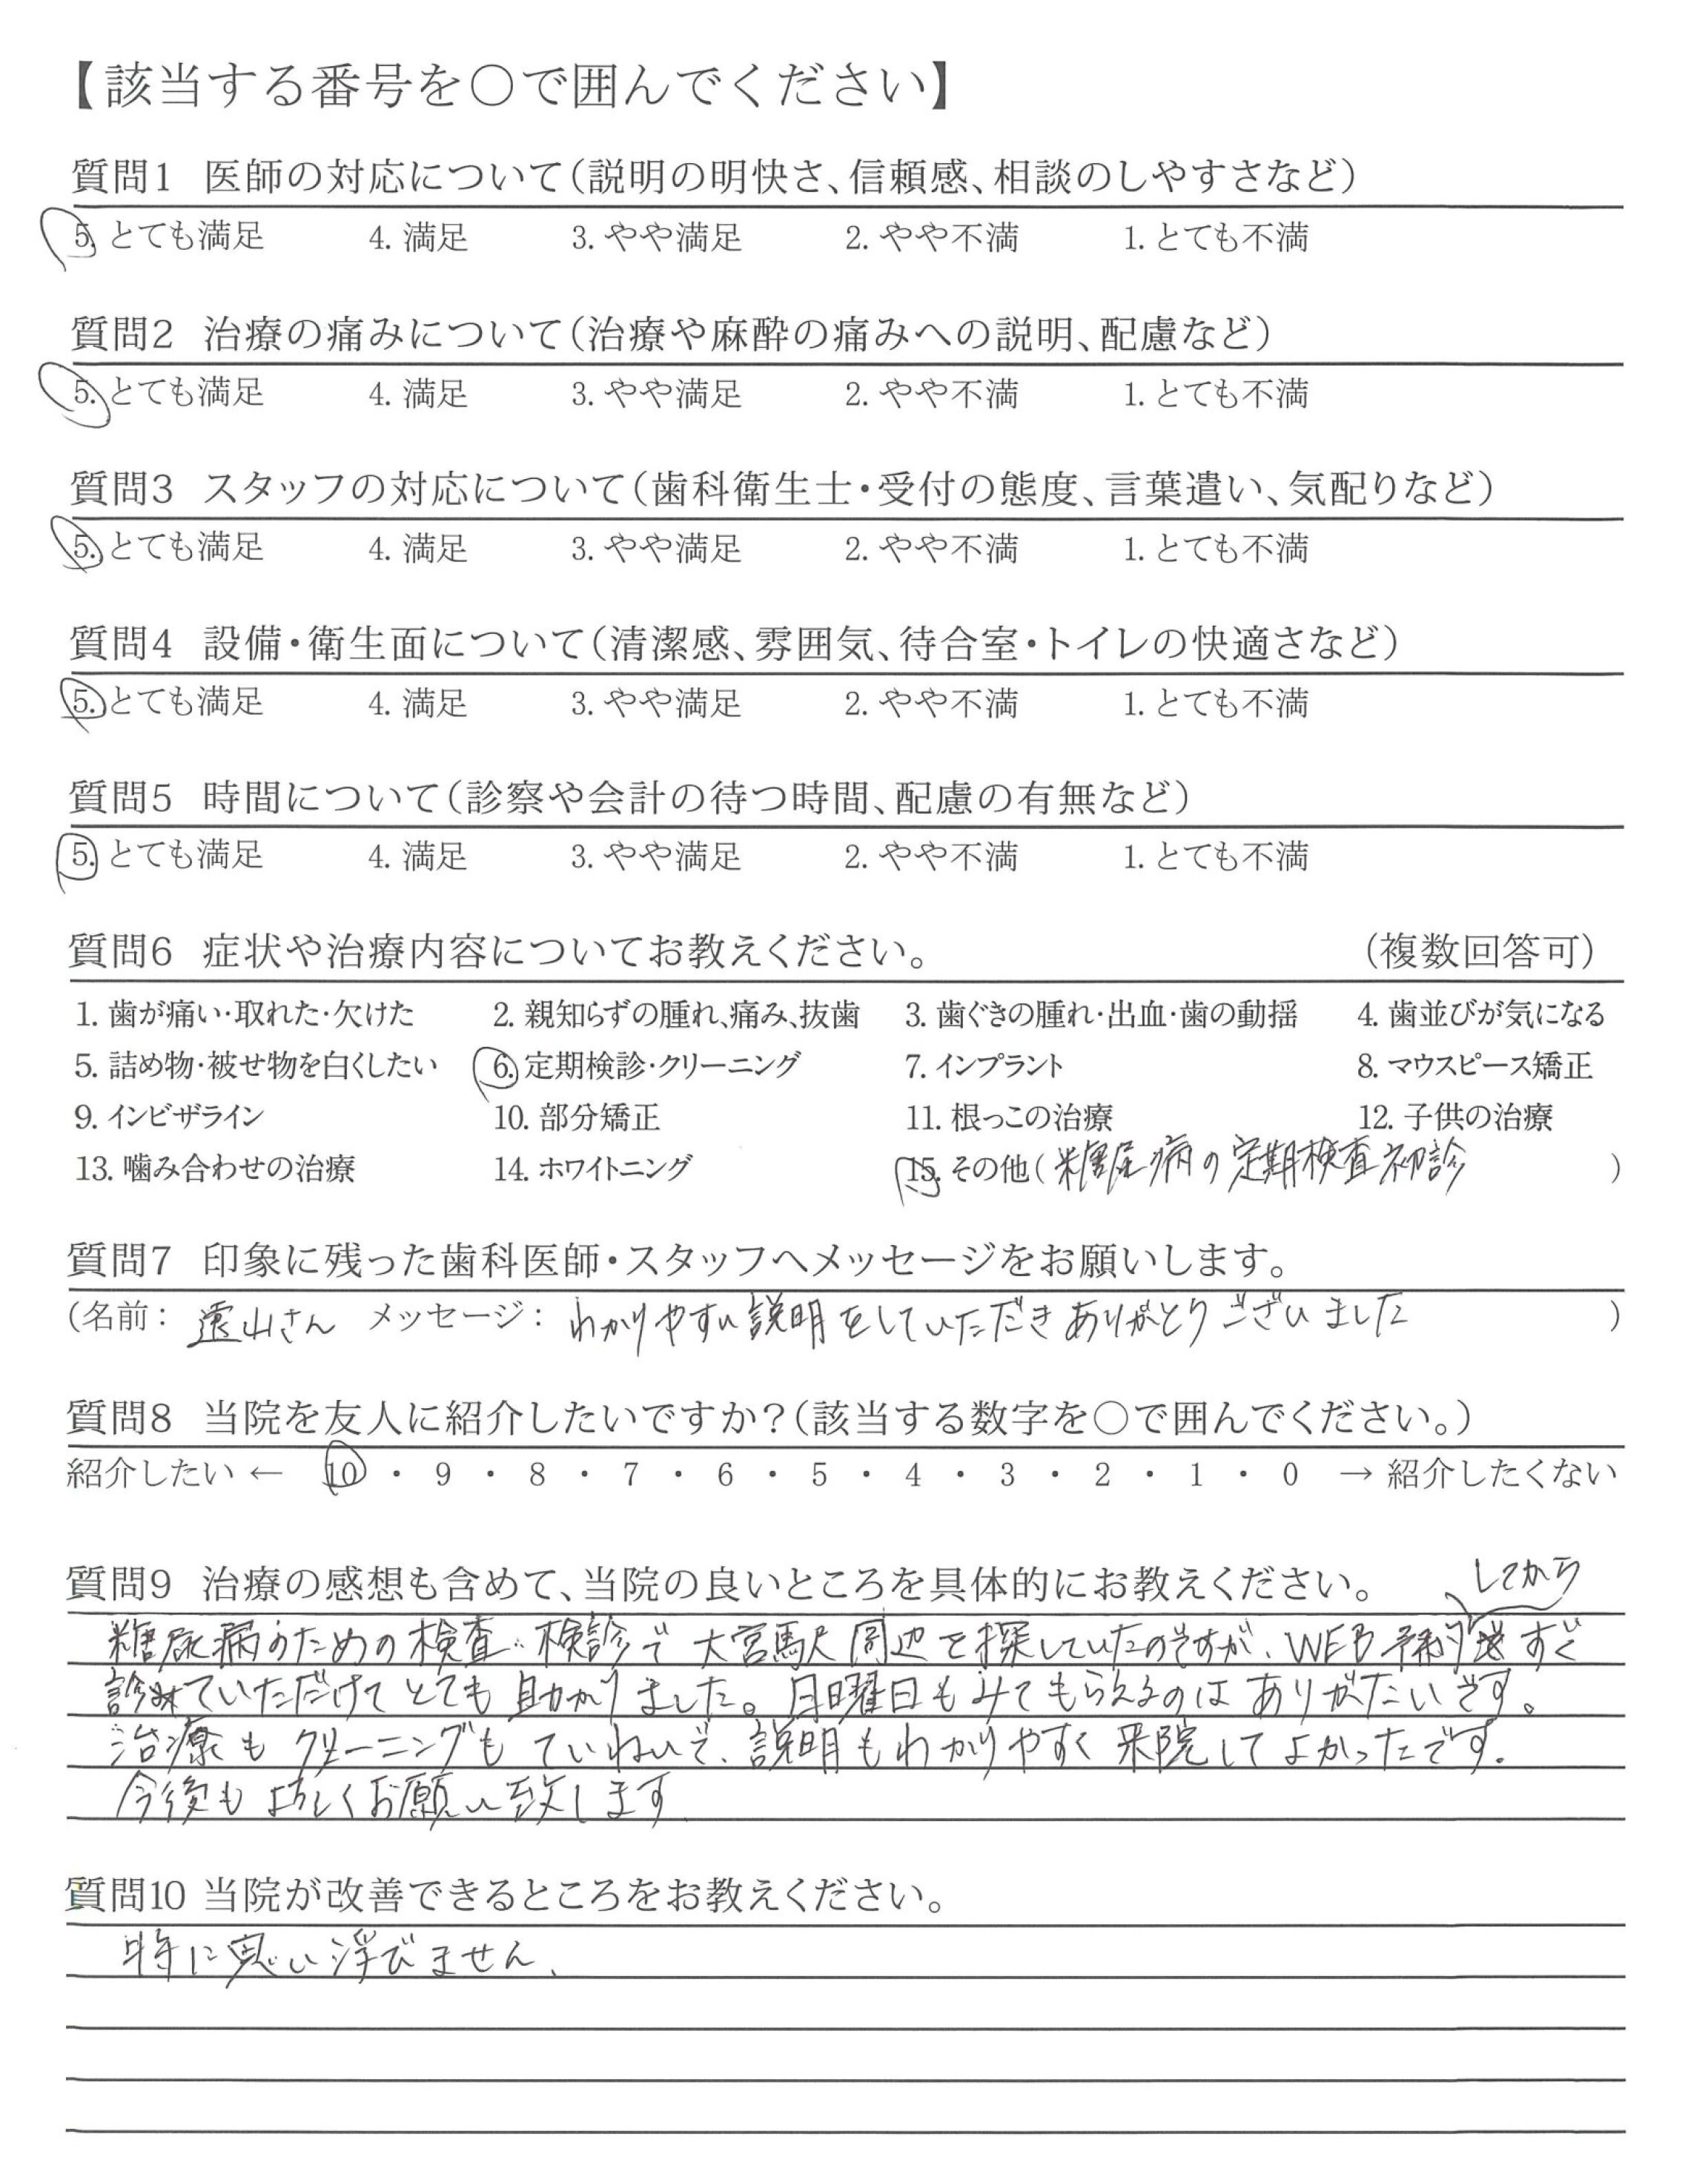 【該当する番号を○で囲んでください】
質問1 医師の対応について(説明の明快さ、信頼感、相談のしやすさなど)
5. とても満足 4. 満足 3. やや満足 2. やや不満 1. とても不満
質問2 治療の痛みについて(治療や麻酔の痛みへの説明、配慮など)
5. とても満足 4. 満足 3. やや満足 2. やや不満 1. とても不満
質問3 スタッフの対応について(歯科衛生士・受付の態度、言葉遣い、気配りなど)
5. とても満足 4. 満足 3. やや満足 2. やや不満 1. とても不満
質問4 設備・衛生面について(清潔感、雰囲気、待合室・トイレの快適さなど)
5. とても満足 4. 満足 3. やや満足 2. やや不満 1. とても不満
質問5 時間について(診察や会計の待つ時間、配慮の有無など)
5. とても満足 4. 満足 3. やや満足 2. やや不満 1. とても不満
質問6 症状や治療内容についてお教えください。 (複数回答可)
1. 歯が痛い・取れた・欠けた 2. 親知らずの腫れ、痛み、抜歯 3. 歯ぐきの腫れ・出血・歯の動揺 4. 歯並びが気になる
5. 詰め物・被せ物を白くしたい 6. 定期検診・クリーニング 7. インプラント 8. マウスピース矯正
9. インビザライン 10. 部分矯正 11. 根っこの治療 12. 子供の治療
13. 噛み合わせの治療 14. ホワイトニング 15. その他(糖尿病の定期検査初診 )
質問7 印象に残った歯科医師・スタッフへメッセージをお願いします。
(名前: 遠山さん メッセージ: わかりやすい説明をしていただきありがとうございました )
質問8 当院を友人に紹介したいですか?(該当する数字を○で囲んでください。)
紹介したい ← 10 ・ 9 ・ 8 ・ 7 ・ 6 ・ 5 ・ 4 ・ 3 ・ 2 ・ 1 ・ 0 → 紹介したくない
質問9 治療の感想も含めて、当院の良いところを具体的にお教えください。
糖尿病のための検査・検診で大宮駅周辺を探していたのですが、WEB予約してからすぐ
診ていただけてとても助かりました。日曜日もみてもらえるのはありがたいです。
治療もクリーニングもていねいで、説明もわかりやすく来院してよかったです。
今後もよろしくお願い致します
質問10 当院が改善できるところをお教えください。
特に思い浮びません、